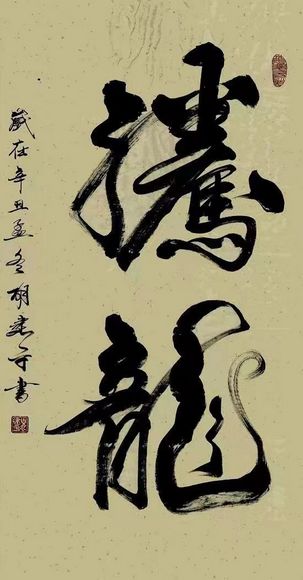 騰龍
歲在辛丑孟冬胡建平書